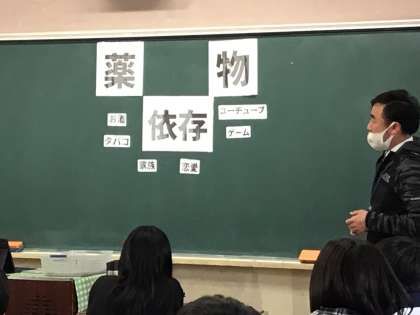 薬 物
依存
お酒
タバコ
家族
恋愛
ユーチューブ
ゲーム